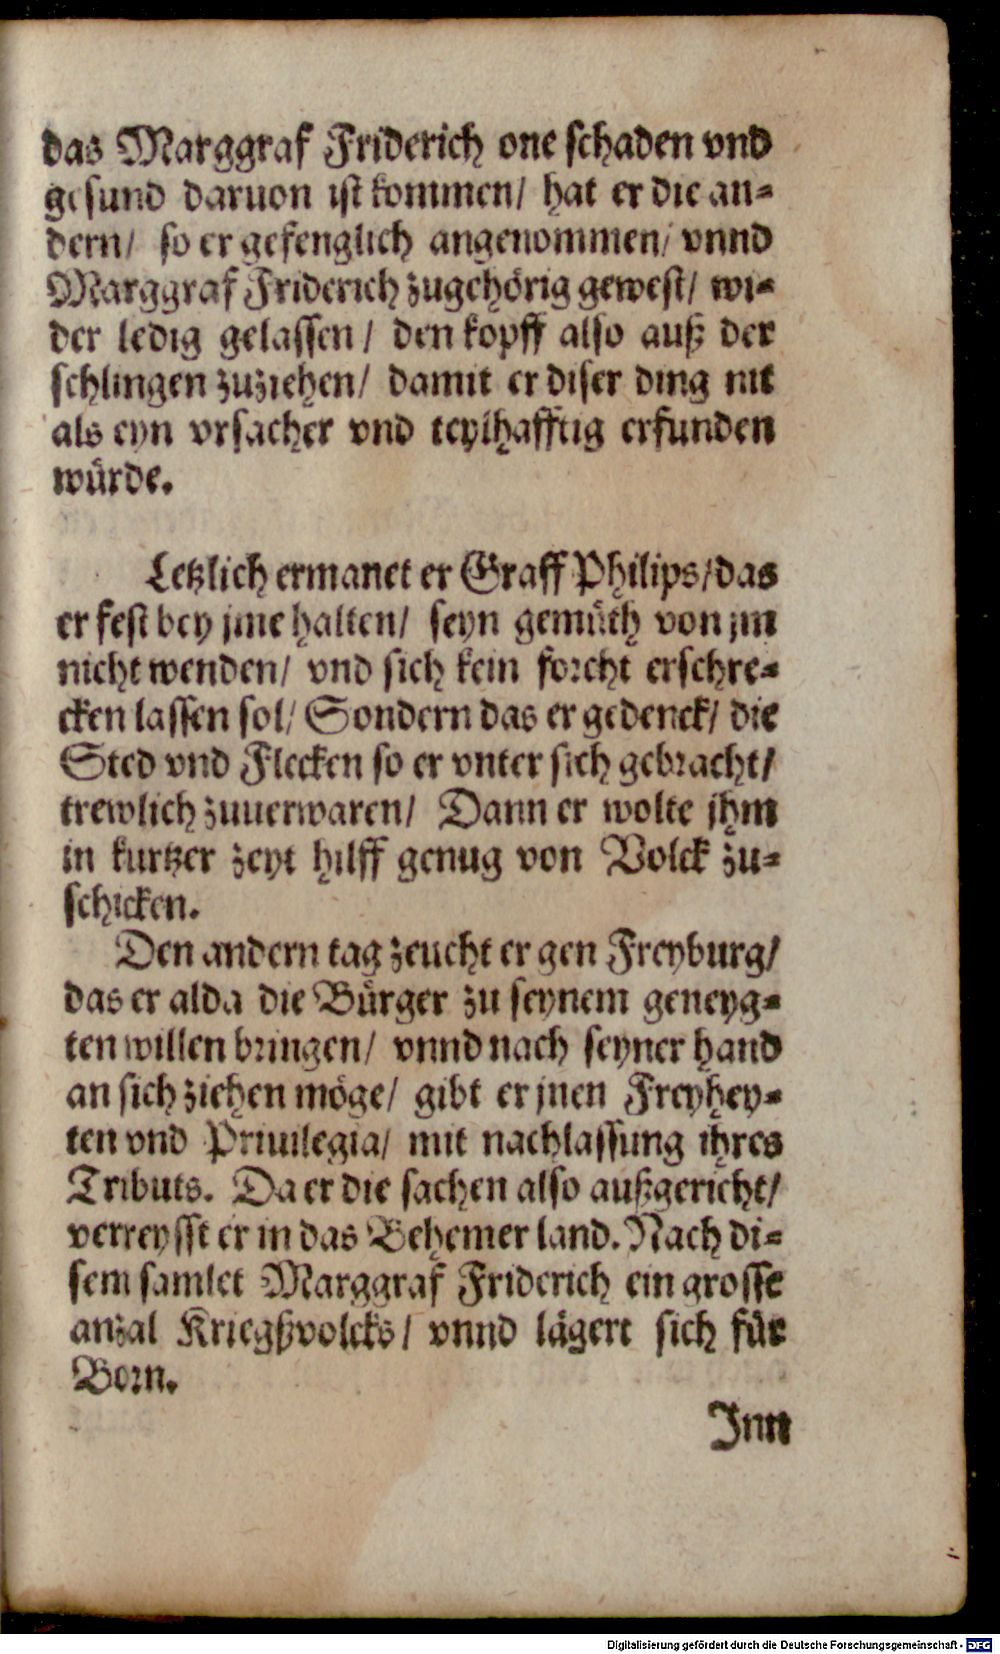 das Marggraf Friderich one schaden vnd
gesund daruon ist kommen/ hat er die an-
dern/ so er gefenglich angenommen/ vnnd
Marggraf Friderich zugehörig gewest/ wi-
der ledig gelassen/ den kopff also auß der
schlingen zuziehen/ damit er diser ding nit
als eyn vrsacher vnd teylhafftig erfunden
würde.
Letzlich ermanet er Graff Philips/ das
er fest bey jme halten/ seyn gemüth von jm
nicht wenden/ vnd sich kein forcht erschre-
cken lassen sol/ Sondern das er gedenck/ die
Sted vnd Flecken so er vnter sich gebracht/
trewlich zuuerwaren/ Dann er wolte jhm
in kurtzer zeyt hilff genug von Volck zu-
schicken.
Den andern tag zeucht er gen Freyburg/
das er alda die Bürger zu seynem geneyg-
ten willen bringen/ vnnd nach seyner hand
an sich ziehen möge/ gibt er jnen Freyhey-
ten vnd Priuilegia/ mit nachlassung ihres
Tributs. Da er die sachen also außgericht/
verreysst er in das Behemer land. Nach di-
sem samlet Marggraf Friderich ein grosse
anzal Kriegßvolcks/ vnnd lägert sich für
Born.
Inn
Digitalisierung gefördert durch die Deutsche Forschungsgemeinschaft - DFG